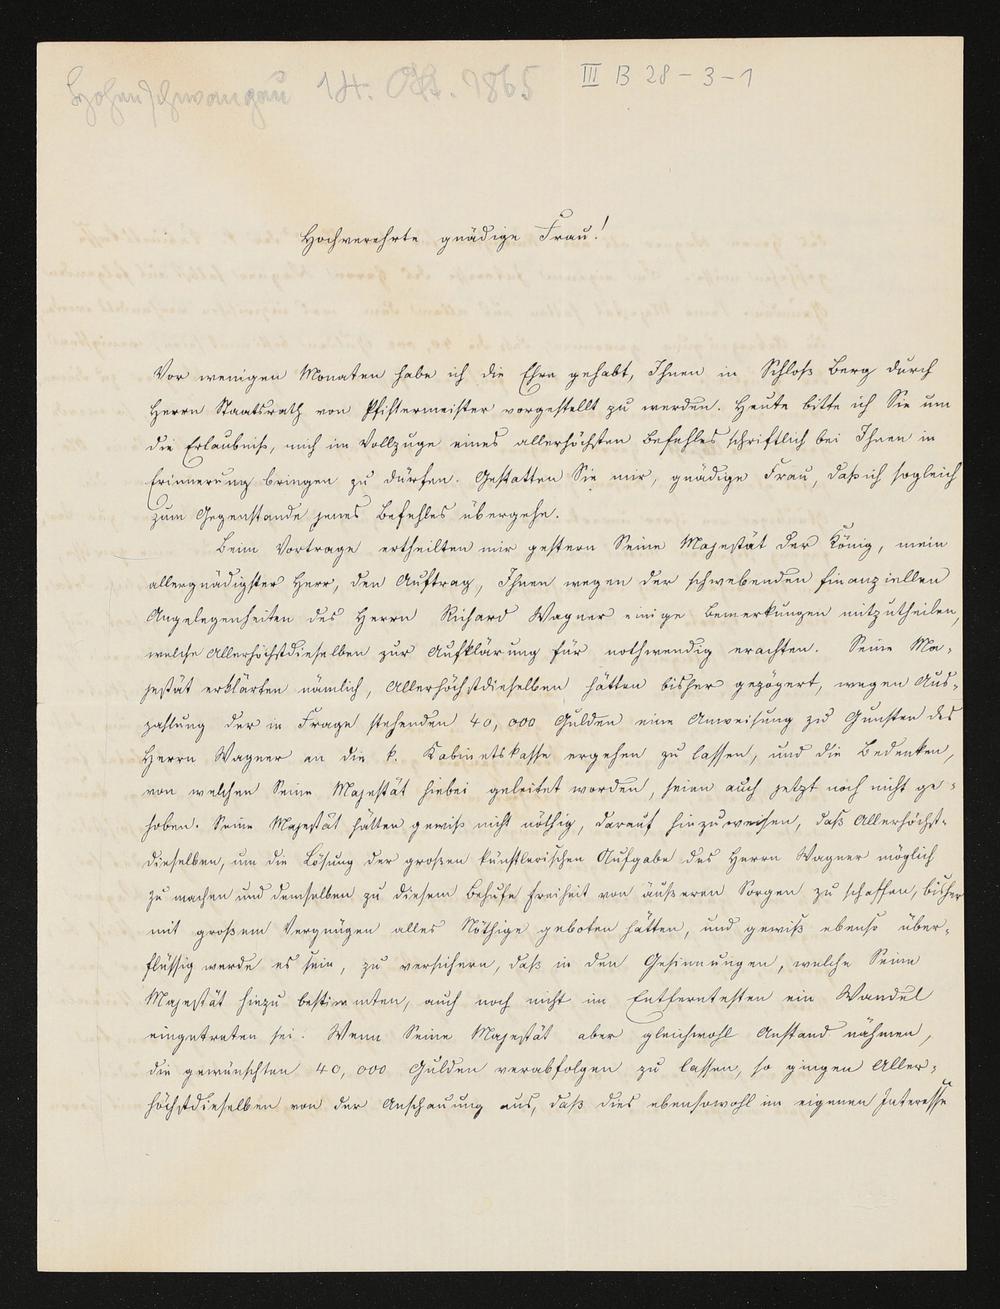 Hohenschwangau 14. Okt. 1865
III B 28-3-1
Hochverehrte gnädige Frau!
Vor wenigen Monaten habe ich die Ehre gehabt, Ihnen in Schloß Berg durch
Herrn Staatsrath von Pfistermeister vorgestellt zu werden. Heute bitte ich Sie um
die Erlaubniß, mich im Vollzuge eines allerhöchsten Befehles schriftlich bei Ihnen in
Erinnerung bringen zu dürfen. Gestatten Sie mir, gnädige Frau, daß ich sogleich
zum Gegenstande jenes Befehles übergehe.
Beim Vortrage ertheilten mir gestern Seine Majestät der König, mein
allergnädigster Herr, den Auftrag, Ihnen wegen der schwebenden finanziellen
Angelegenheiten des Herrn Richard Wagner einige Bemerkungen mitzutheilen,
welche Allerhöchstdieselben zur Aufklärung für nothwendig erachten. Seine Ma-
jestät erklärten nämlich, Allerhöchstdieselben hätten bisher gezögert, wegen Aus-
zahlung der in Frage stehenden 40,000 Gulden eine Anweisung zu Gunsten des
Herrn Wagner an die k. Kabinetskasse ergehen zu lassen, und die Bedenken,
von welchen Seine Majestät hiebei geleitet worden, seien auch jetzt noch nicht ge-
hoben. Seine Majestät hätten gewiß nicht nöthig, darauf hinzuweisen, daß Allerhöchst-
dieselben, um die Lösung der großen künstlerischen Aufgabe des Herrn Wagner möglich
zu machen und demselben zu diesem Behufe Freiheit von äußeren Sorgen zu schaffen, bisher
mit großem Vergnügen alles Nöthige geboten hätten, und gewiß ebenso über-
flüssig werde es sein, zu versichern, daß in den Gesinnungen, welche Seine
Majestät hiezu bestimmten, auch noch nicht im Entferntesten ein Wandel
eingetreten sei. Wenn Seine Majestät aber gleichwohl Anstand nähmen,
die gewünschten 40,000 Gulden verabfolgen zu lassen, so gingen Aller-
höchstdieselben von der Anschauung aus, daß dies ebensowohl im eigenen Interesse